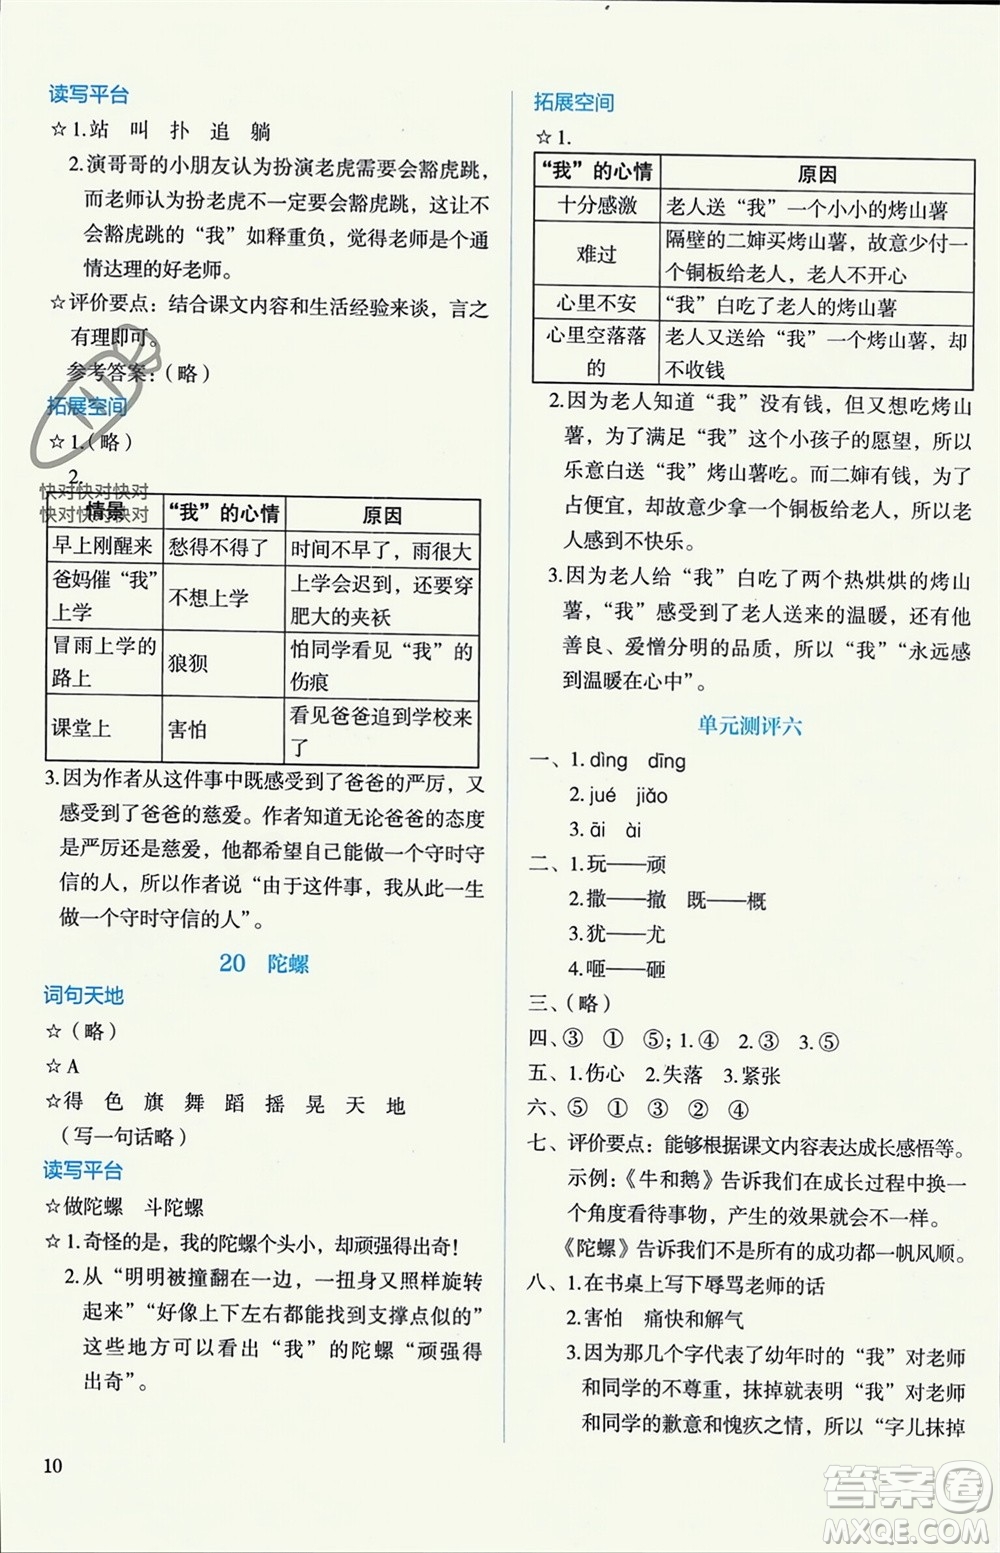 读写平台
☆1.站 叫 扑 追 躺
2.演哥哥的小朋友认为扮演老虎要会豁虎跳，
而老师认为扮老虎不一定要会豁虎跳，这让不
会豁虎跳的“我”如释重负，觉得老师是个通
情达理的好老师。
☆评价要点：结合课文内容和生活经验来谈，言之
有理即可。
参考答案：（略）
拓展空间
☆1.（略）
2.
快对快对快对
快对快对快对
情景 “我”的心情 原因
早上刚醒来 愁得不得了 时间不早了，雨很大
爸妈催“我”
上学
不想上学
上学会迟到，还要穿
肥大的夹袄
冒雨上学的
路上
狼狈
怕同学看见“我”的
伤痕
课堂上 害怕
看见爸爸追到学校来
了
3.因为作者从这件事中既感受到了爸爸的严厉，又
感受到了爸爸的慈爱。作者知道无论爸爸的态度
是严厉还是慈爱，他都希望自己能做一个守时守
信的人，所以作者说“由于这件事，我从此一生
做一个守时守信的人”。
20 陀螺
词句天地
☆（略）
☆A
☆得 色 旗 舞 蹈 摇 晃 天 地
（写一句话略）
读写平台
☆做陀螺 斗陀螺
☆1.奇怪的是，我的陀螺个头小，却顽强得出奇！
2.从“明明被撞翻在一边，一扭身又照样旋转
起来”“好像上下左右都能找到支撑点似的”
这些地方可以看出“我”的陀螺“顽强得
出奇”。
10
拓展空间
☆1.
“我”的心情 原因
十分感激 老人送“我”一个小小的烤山薯
难过
隔壁的二婶买烤山薯，故意少付一
个铜板给老人，老人不开心
心里不安 “我”白吃了老人的烤山薯
心里空落落
的
老人又送给“我”一个烤山薯，却
不收钱
2.因为老人知道“我”没有钱，但又想吃烤山
薯，为了满足“我”这个小孩子的愿望，所以
乐意白送“我”烤山薯吃。而二婶有钱，为了
占便宜，却故意少拿一个铜板给老人，所以老
人感到不快乐。
3.因为老人给“我”白吃了两个热烘烘的烤山
薯，“我”感受到了老人送来的温暖，还有他
善良、爱憎分明的品质，所以“我”“永远感
到温暖在心中”。
单元测评六
一、1.dìng dīng
2.jué jiǎo
3.āi ài
二、1.玩——顽
2.撒——撤 既——概
3.犹——尤
4.咂——砸
三、（略）
四、③ ① ⑤；1.④ 2.③ 3.⑤
五、1.伤心 2.失落 3.紧张
六、⑤ ① ③ ② ④
七、评价要点：能够根据课文内容表达成长感悟等。
示例：《牛和鹅》告诉我们在成长过程中换一
个角度看待事物，产生的效果就会不一样。
《陀螺》告诉我们不是所有的成功都一帆风顺。
八、1.在书桌上写下辱骂老师的话
2.害怕 痛快和解气
3.因为那几个字代表了幼年时的“我”对老师
和同学的不尊重，抹掉就表明“我”对老师
和同学的歉意和愧疚之情，所以“字儿抹掉
答案圈
MXQE.COM